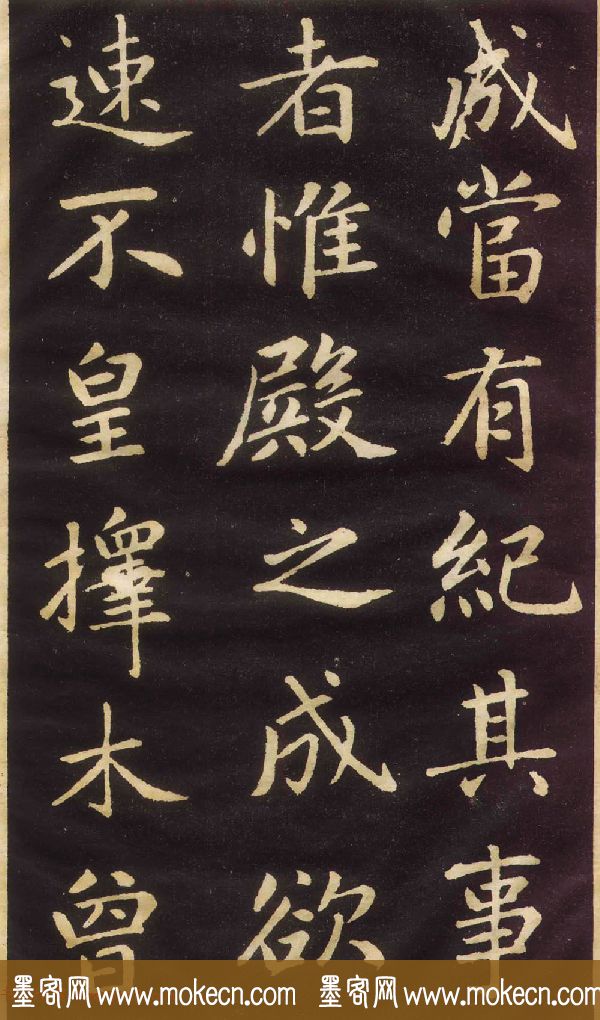 咸當有紀其事
者惟殿之成欲
速不皇擇木曾
墨客网 www.mokecn.com 墨客网 www.mokecn.com